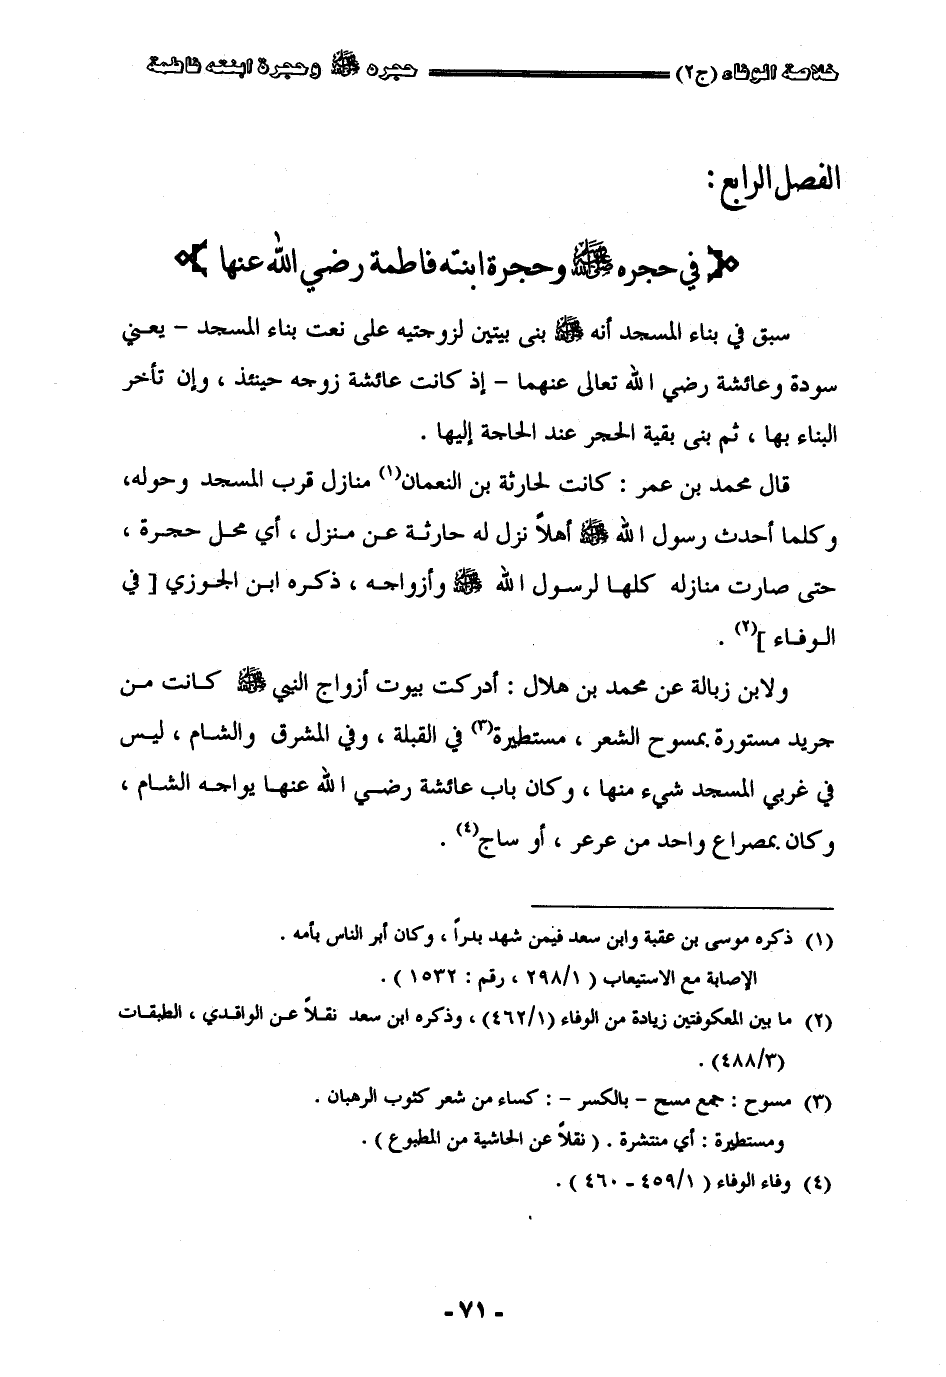 خلاصة الوفاء (ج٢) حجره ﷺ وحجرة ابنته فاطمة
الفصل الرابع :
﴿ في حجره ﷺ وحجرة ابنته فاطمة رضي الله عنها ﴾
سبق في بناء المسجد أنه ﷺ بنى بيتين لزوجتيه على نعت بناء المسجد – يعني
سودة وعائشة رضي الله تعالى عنهما – إذ كانت عائشة زوجه حينئذ ، وإن تأخر
البناء بها ، ثم بنى بقية الحجر عند الحاجة إليها .
قال محمد بن عمر : كانت لحارثة بن النعمان(١) منازل قرب المسجد وحوله،
وكلما أحدث رسول الله ﷺ أهلاً نزل له حارثة عن منزل ، أي محل حجرة ،
حتى صارت منازله كلها لرسول الله ﷺ وأزواجه ، ذكره ابن الجوزي [ في
الوفاء ](٢) .
ولابن زبالة عن محمد بن هلال : أدركت بيوت أزواج النبي ﷺ كانت من
جريد مستورة بمسوح الشعر ، مستطيرة(٣) في القبلة ، وفي المشرق والشام ، ليس
في غربي المسجد شيء منها ، وكان باب عائشة رضي الله عنها يواجه الشام ،
وكان بمصراع واحد من عرعر ، أو ساج(٤) .
(١) ذكره موسى بن عقبة وابن سعد فيمن شهد بدراً ، وكان أبر الناس بأمه .
الإصابة مع الاستيعاب ( ٢٩٨/١ ، رقم : ١٥٣٢ ) .
(٢) ما بين المعكوفتين زيادة من الوفاء (٤٦٢/١) ، وذكره ابن سعد نقلاً عن الواقدي ، الطبقات
(٤٨٨/٣) .
(٣) مسوح : جمع مسح – بالكسر – : كساء من شعر كثوب الرهبان .
ومستطيرة : أي منتشرة . ( نقلاً عن الحاشية من المطبوع ) .
(٤) وفاء الوفاء ( ٤٥٩/١ ـ ٤٦٠ ) .
- ٧١ -